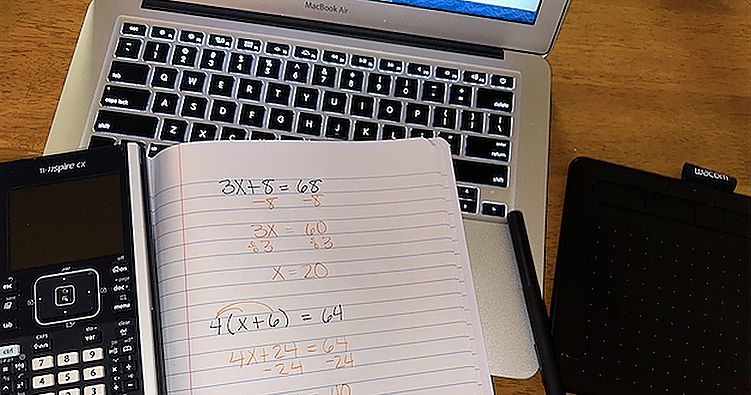 MacBook Air
esc
Q W E R T Y U I O P
tab
delete
caps lock
A S D F G H J K L
enter
return
shift
Z X C
TI-nspire CX
esc
on
doc
menu
tab
ctrl
CAPS
var
del
7 8 9
4 5 6
3X+8 = 68
-8 -8
3X = 60
÷3 ÷3
X = 20
4(X+6) = 64
4X+24 = 64
-24 -24
= 40
wacom